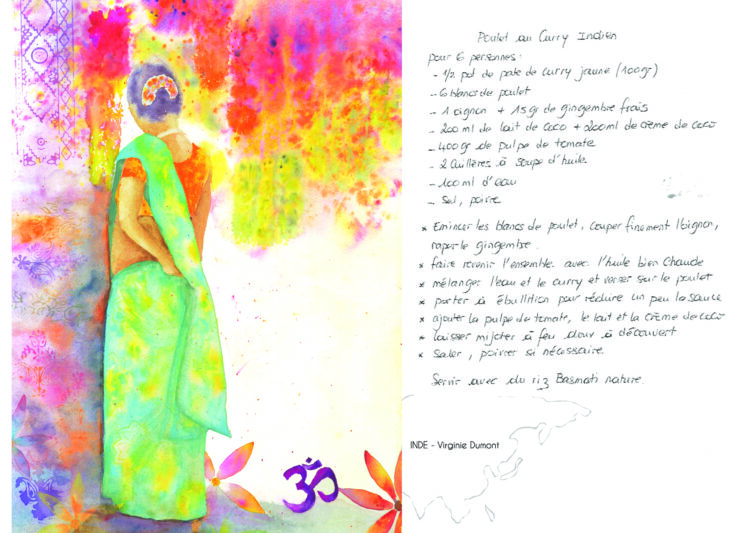 Poulet au Curry Indien
pour 6 personnes :
- 1/2 pot de pate de curry jaune (100gr)
- 6 blancs de poulet
- 1 oignon + 15 gr de gingembre frais
- 200 ml de lait de coco + 200 ml de crème de coco
- 400 gr de pulpe de tomate
- 2 cuillères à soupe d'huile
- 100 ml d'eau
- Sel, poivre
* Emincer les blancs de poulet, couper finement l'oignon,
raper le gingembre.
* faire revenir l'ensemble avec l'huile bien chaude
* mélanger l'eau et le curry et verser sur le poulet
* porter à ébullition pour réduire un peu la sauce
* ajouter la pulpe de tomate, le lait et la crème de coco
* laisser mijoter à feu doux à découvert
* Saler, poivrer si nécessaire.
Servir avec du riz Basmati nature.
INDE - Virginie Dumont
ॐ